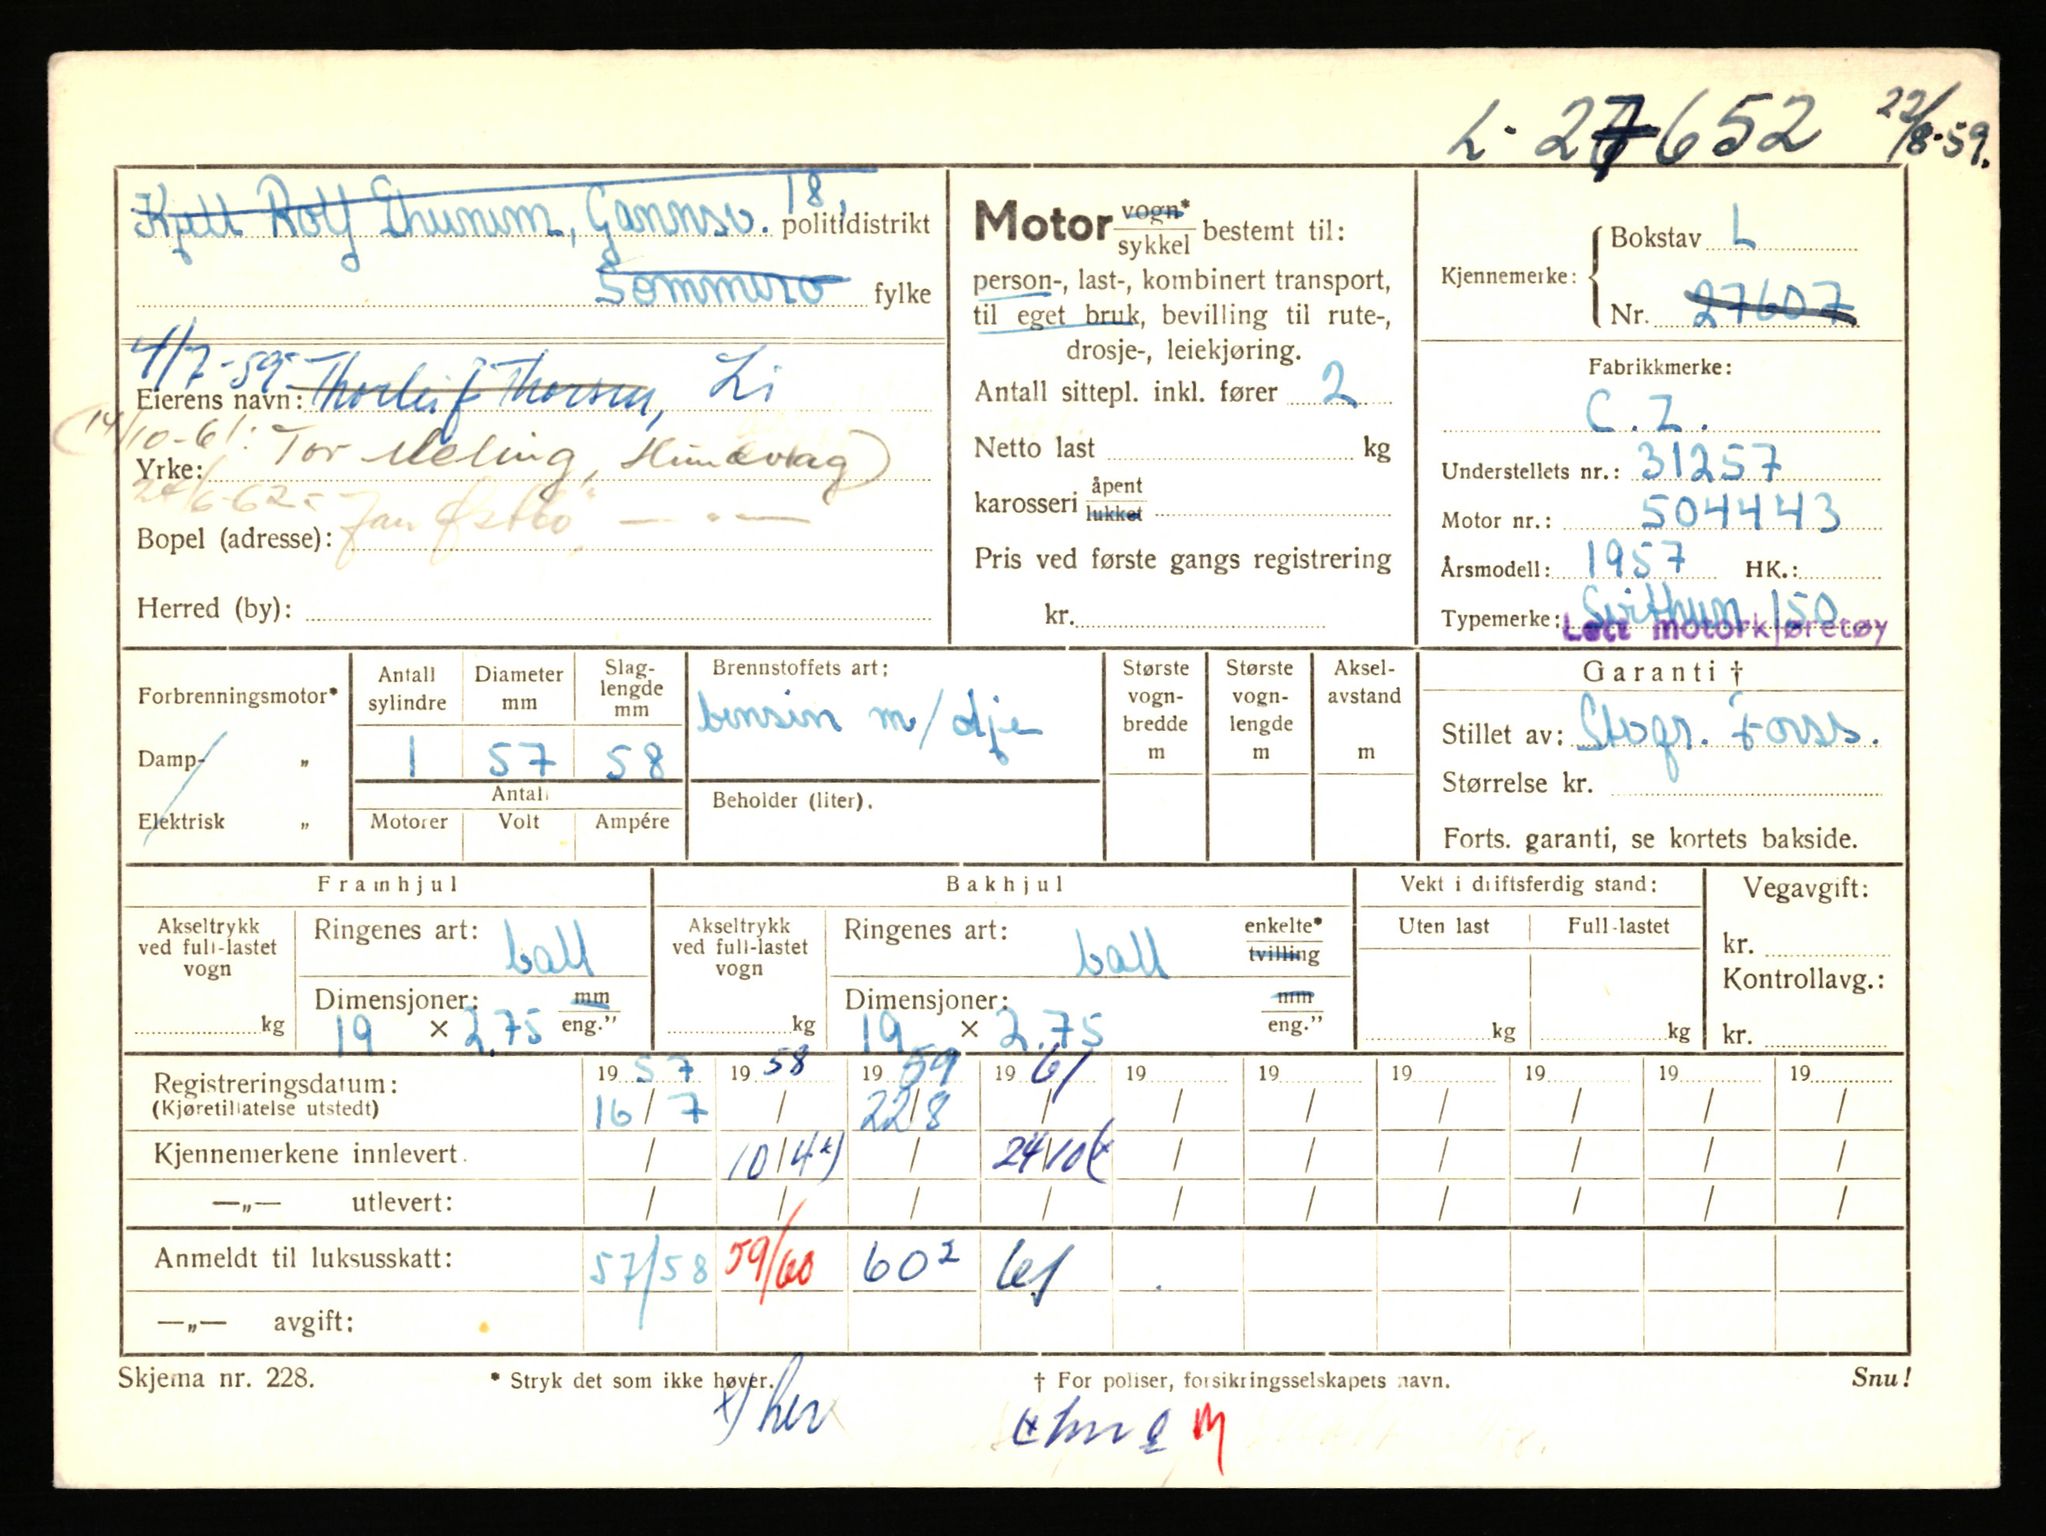 L-27652 22/8-59.
Kjell Rolf Thunem, Gannsv. 18, politidistrikt
Sommero fylke
4/7-59 Eierens navn: Thorleif Thorsen, Li
(14/10-61: Tor Meling, Hundvåg)
Yrke:
24/6-62: Jan Østbø — " —
Bopel (adresse):
Herred (by):
Motor vogn* sykkel bestemt til:
person-, last-, kombinert transport,
til eget bruk, bevilling til rute-,
drosje-, leiekjøring.
Antall sittepl. inkl. fører 2
Netto last kg
karosseri åpent lukket
Pris ved første gangs registrering
kr.
Kjennemerke: Bokstav L
Nr. 27607
Fabrikkmerke:
C.Z.
Understellets nr.: 31257
Motor nr.: 504443
Årsmodell: 1957 HK.:
Typemerke: Svithun 150
Lett motorkjøretøy
Forbrenningsmotor*
Damp- „
Elektrisk „
Antall sylindre 1
Diameter mm 57
Slaglengde mm 58
Antall
Motorer Volt Ampére
Brennstoffets art:
bensin m/olje
Beholder (liter).
Største vogn-bredde m
Største vogn-lengde m
Aksel-avstand m
Garanti †
Stillet av: Stvgr. Forss.
Størrelse kr.
Forts. garanti, se kortets bakside.
Framhjul
Akseltrykk ved full-lastet vogn kg
Ringenes art: ball
Dimensjoner: mm
19 × 2.75 eng.”
Bakhjul
Akseltrykk ved full-lastet vogn kg
Ringenes art: ball enkelte* tvilling
Dimensjoner: mm
19 × 2.75 eng.”
Vekt i driftsferdig stand:
Uten last Full-lastet
kg kg
Vegavgift:
kr.
Kontrollavg.:
kr.
Registreringsdatum: 19 57 19 58 19 59 19 61 19 19 19 19 19 19
(Kjøretillatelse utstedt) 16/7 / 22/8 / / / / / / /
Kjennemerkene innlevert. / 10/4 x) / 24/10 (x / / / / / /
—„— utlevert: / / / / / / / / / /
Anmeldt til luksusskatt: 57/58 59/60 60² 61
—„— avgift:
Skjema nr. 228. * Stryk det som ikke høver. † For poliser, forsikringsselskapets navn. Snu!
x) her
M